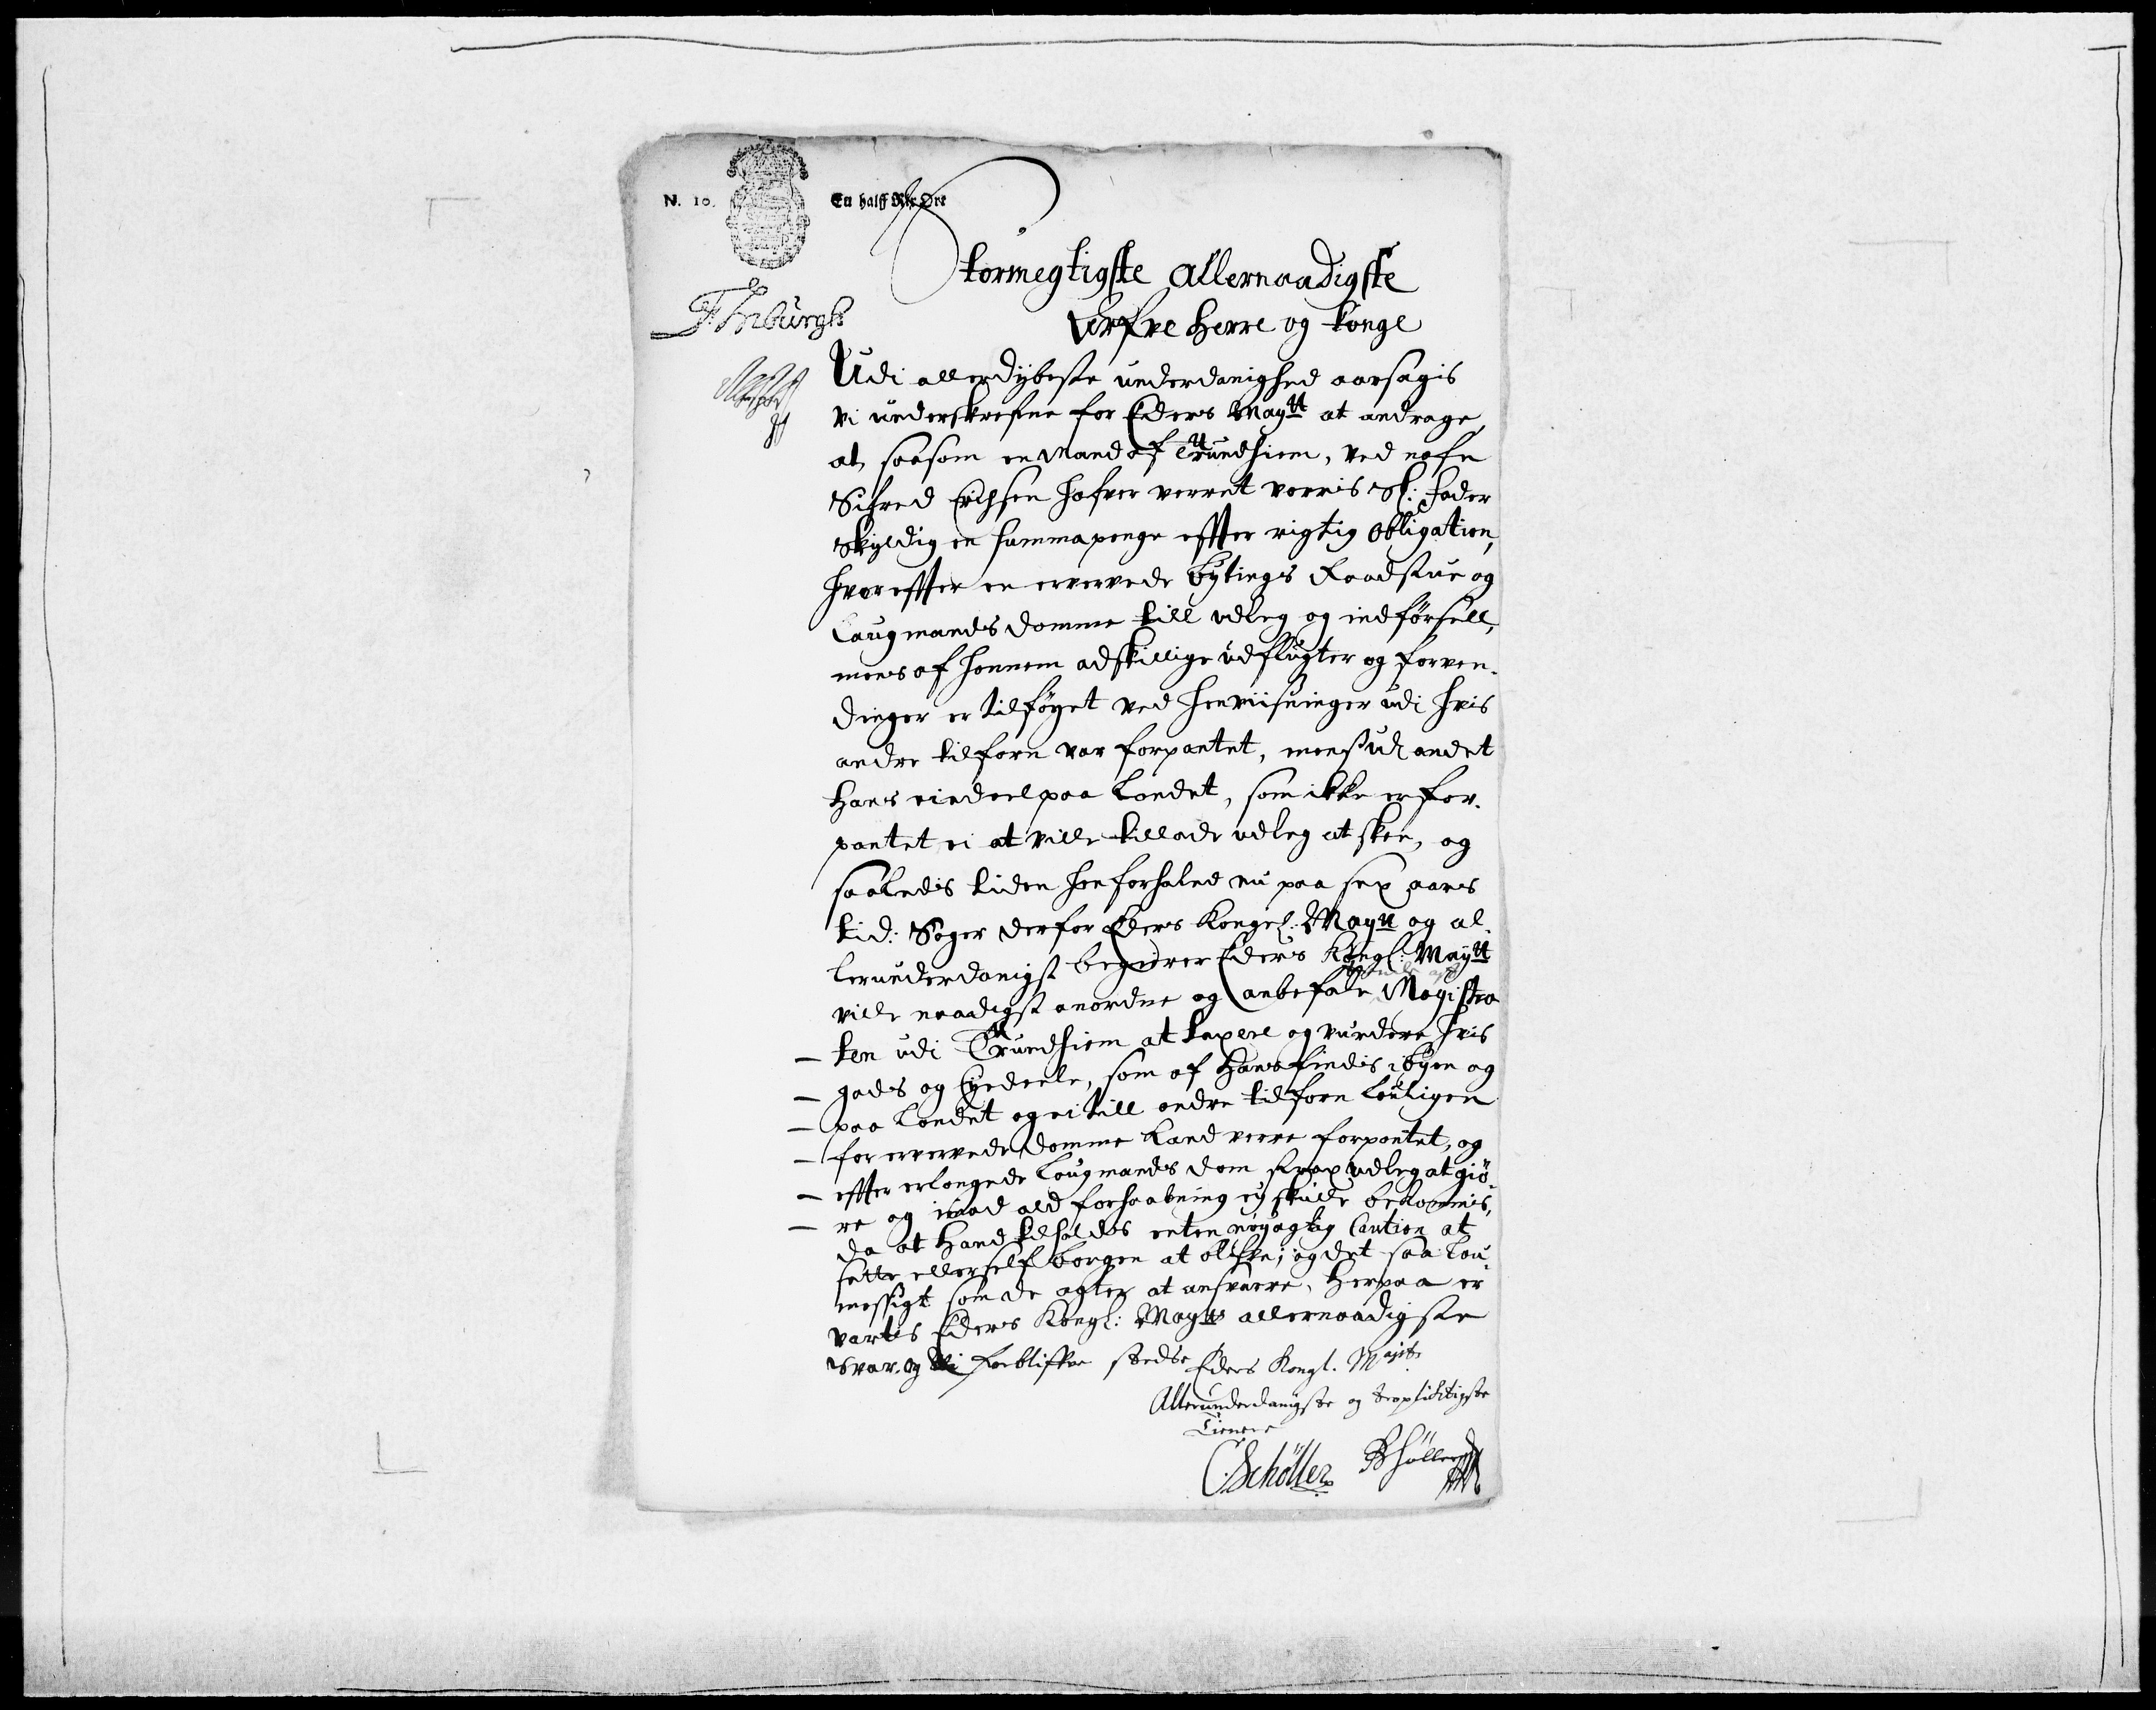 N. 10.
En halff Rix Ort
Stormegtigste Allernaadigste
Arfve Herre og Konge
F: Inburgh
Udi allerdybeste underdanighed aarsagis
vi underskrefne for Eders Maytt at andrage,
at, saasom en Mand af Trundhiem, ved nafn
Sifred Erichsen hafver verret vorris Sl: Fader
skyldig en summa penge effter rigtig obligation,
hvoreffter en erververde Bytings Raadstue og
Laugmands domme till udleg og indførsell,
mens af hannem adskillige udflugter og forven-
dinger er tilføyet ved henviisninger udi hvis
andre tilforn var forpantet, mens udi andet
Hans eiedeel paa Landet, som ikke er for-
pantet ei at ville tillade udleg at skee, og
saaledis tiden henforhaled nu paa sex aars
tid: Søger derfor Eders Kongel: Maytt og al-
lerunderdanigst begierer Eders Kongl: Maytt
ville naadigst anordne og anbefale Magistra
ten udi Trundhiem at taxere og vurdere hvis
gods og Eyedeele, som af Hans findis i Byen og
paa Landet og ei till andre tilforn Lovligen
for erververde domme kand verre forpantet, og
effter erlangede Laugmands dom strax udleg at giø-
re og imod ald forhaabning ey skulde bekommis,
da at Hand tilholdes enten nøyagtig Caution at
sette eller self borgen at blifve; og det saa Lou-
messigt som de agter at ansvarre, Herpaa er
vartis Eders Kongl: Maytts allernaadigste
Svar, og vi forblifver stedse Eders Kongl. Mayts
Allerunderdanigste og troplichtigste
Tienere
C. Schöller